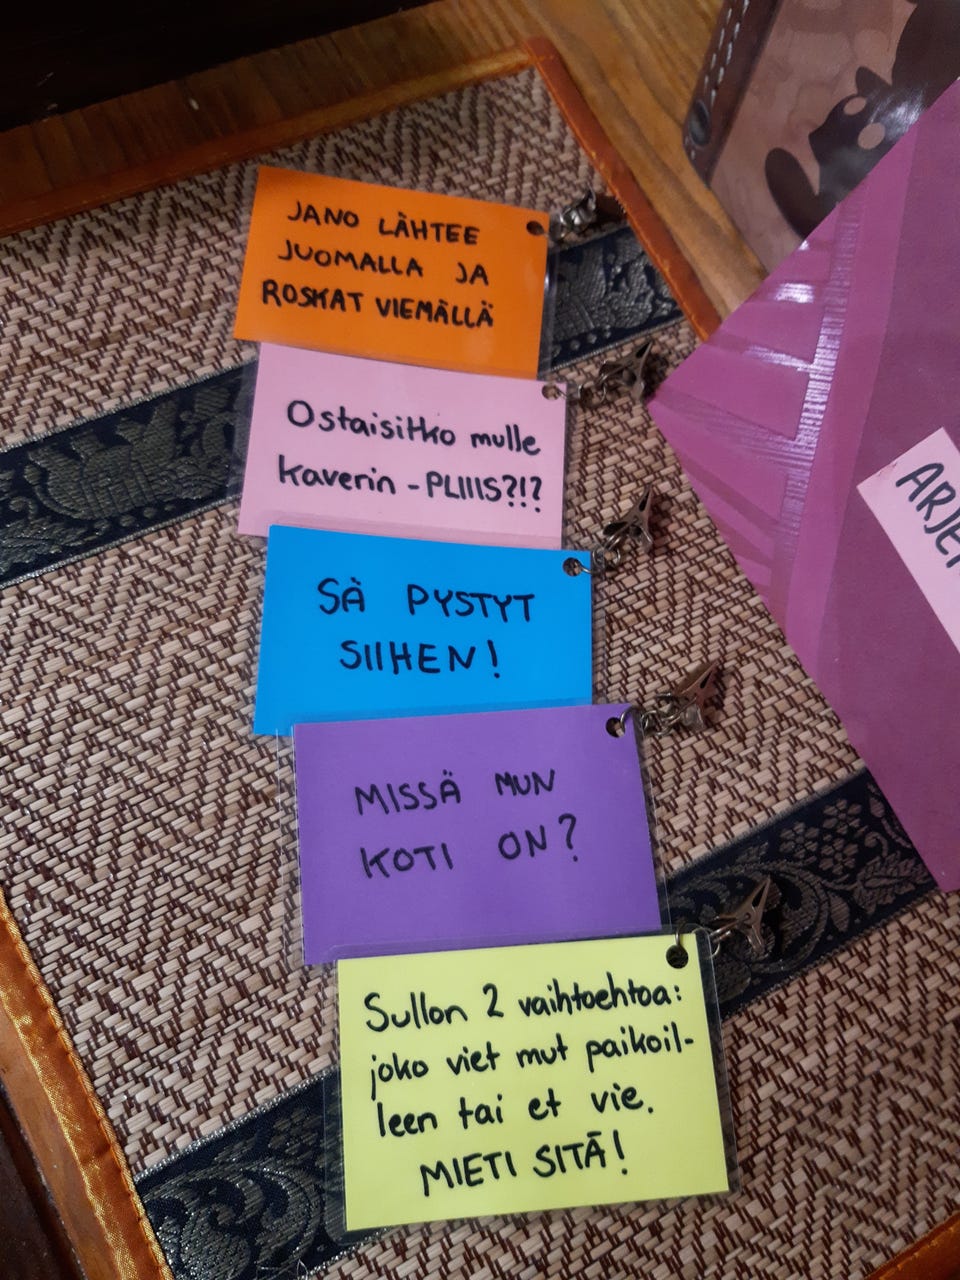 JANO LÄHTEE
JUOMALLA JA
ROSKAT VIEMÄLLÄ
Ostaisitko mulle
kaverin - PLIIIS?!?
SÄ PYSTYT
SIIHEN!
MISSÄ MUN
KOTI ON?
Sullon 2 vaihtoehtoa:
joko viet mut paikoil-
leen tai et vie.
MIETI SITÄ!